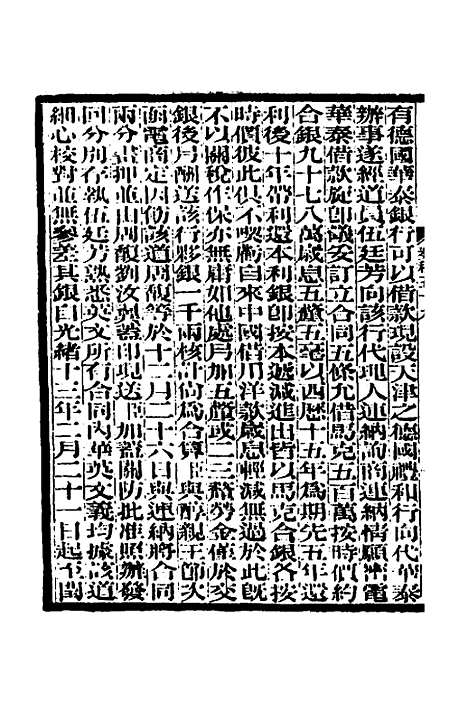 有德國華泰銀行可以借款現設天津之德國禮和行向代華泰
辦事遂經道員伍廷芳向該行代理人連納商商連納情願電
華泰借款旋即議妥訂立合同五條允借馬克五百萬按時價約
合銀九十七八萬歲息五釐五毫以西歷十五年為期先五年還
利後十年帶利還本利銀即按本遞減進出皆以馬克合銀各按
時價彼此俱不喫虧自來中國借用洋款歲息輕減無過於此既
不以關稅作保亦無須如他處月加五釐或二三釐勞金僅於交
銀後另酬送該行夥銀一千兩核計尚為合算臣與醇親王節次
函電商定因飭該道周馥等於十二月二十六日與連納將合同
兩分畫押並由周馥劉汝翼蓋印現送臣加蓋關防批准照辦發
回分別存執伍廷芳熟悉英文所有合同內華英文義均據該道
細心校對並無參差其銀自光緒十三年二月二十一日起至閏